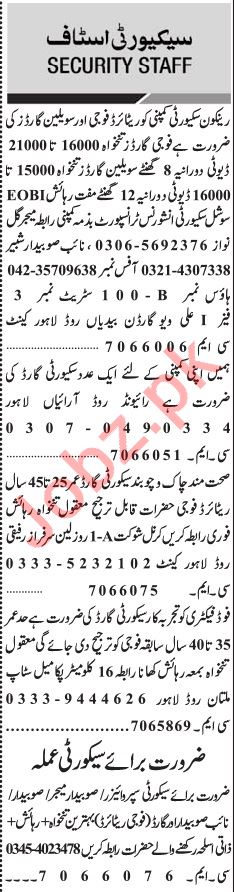 سیکیورٹی اسٹاف
SECURITY STAFF
رینکون سیکورٹی کمپنی کو ریٹائرڈ فوجی اور سویلین گارڈز کی
ضرورت ہے فوجی گارڈز تنخواہ 16000 تا 21000
ڈیوٹی دورانیہ 8 گھنٹے سویلین گارڈز تنخواہ 15000 تا
16000 ڈیوٹی دورانیہ 12 گھنٹے مفت رہائش EOBI
سوشل سیکیورٹی انشورنس ٹرانسپورٹ بذمہ کمپنی رابطہ میجر گل
نواز 0306-5692376 ، نائب صوبیدار شبیر
0321-4307338 آفس نمبر 042-35709638
ہاؤس نمبر 100-B سٹریٹ نمبر 3
فیز I علی ویو گارڈن بیدیاں روڈ لاہور کینٹ
سی ایم 7066006
ہمیں اپنی کمپنی کے لئے ایک عدد سیکیورٹی گارڈ کی
ضرورت ہے رائیونڈ روڈ آرائیاں لاہور
0307-0490334
سی۔ایم۔ 7066051
صحت مند چاک و چوبند سیکیورٹی گارڈ عمر 25 تا 45 سال
ریٹائرڈ فوجی حضرات قابل ترجیح معقول تنخواہ رہائش
فوری رابطہ کریں کرنل شوکت 1-A روز لین سرفراز رفیقی
روڈ لاہور کینٹ 0333-5232102
سی۔ایم۔ 7066075
فوڈ فیکٹری کو تجربہ کار سیکیورٹی گارڈ کی ضرورت ہے حد عمر
35 تا 40 سال سابقہ فوجی کو ترجیح دی جائے گی معقول
تنخواہ بمعہ رہائش کھانا رابطہ 16 کلومیٹر پکا میل سٹاپ
ملتان روڈ لاہور 0333-9444626
سی۔ایم۔ 7065869
ضرورت برائے سیکورٹی عملہ
ضرورت برائے سیکورٹی سپروائیزر/صوبیدار میجر/صوبیدار/
نائب صوبیدار اور گارڈ (فوجی ریٹائرڈ) بہترین تنخواہ + رہائش +
ذاتی اسلحہ رکھنے والے حضرات رابطہ کریں 0345-4023478
سی۔ایم۔ 7066076
Jobz.pk